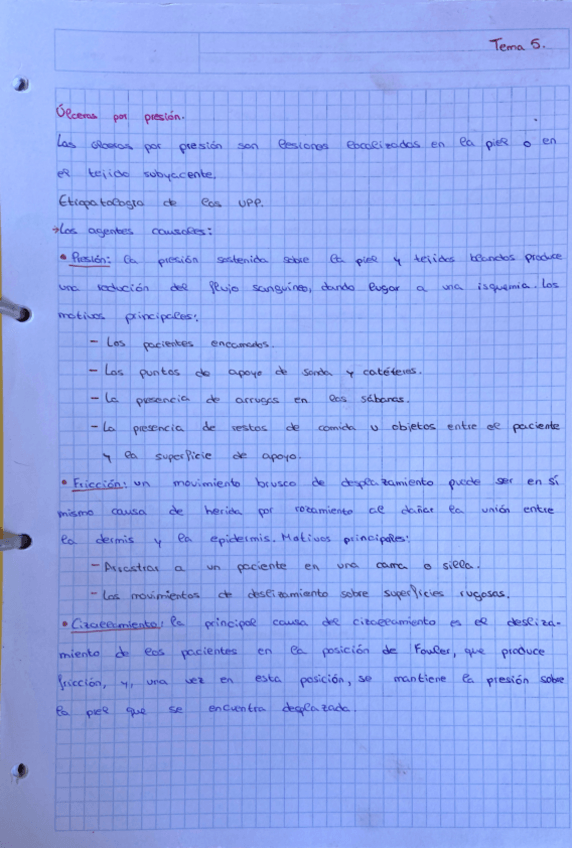 Tema 5.
Úlceras por presión.
Las úlceras por presión son lesiones localizadas en la piel o en
el tejido subyacente.
Etiopatología de las UPP.
→Los agentes causales:
• Presión: la presión sostenida sobre la piel y tejidos blandos produce
una reducción del flujo sanguíneo, dando lugar a una isquemia. Los
motivos principales:
- Los pacientes encamados.
- Los puntos de apoyo de sonda y catéteres.
- La presencia de arrugas en las sábanas.
- La presencia de restos de comida u objetos entre el paciente
y la superficie de apoyo.
• Fricción: un movimiento brusco de desplazamiento puede ser en sí
mismo causa de herida por rozamiento al dañar la unión entre
la dermis y la epidermis. Motivos principales:
- Arrastrar a un paciente en una cama o silla.
- Los movimientos de deslizamiento sobre superficies rugosas.
• Cizallamiento: la principal causa del cizallamiento es el desliza-
miento de los pacientes en la posición de Fowler, que produce
fricción, y, una vez en esta posición, se mantiene la presión sobre
la piel que se encuentra desplazada.